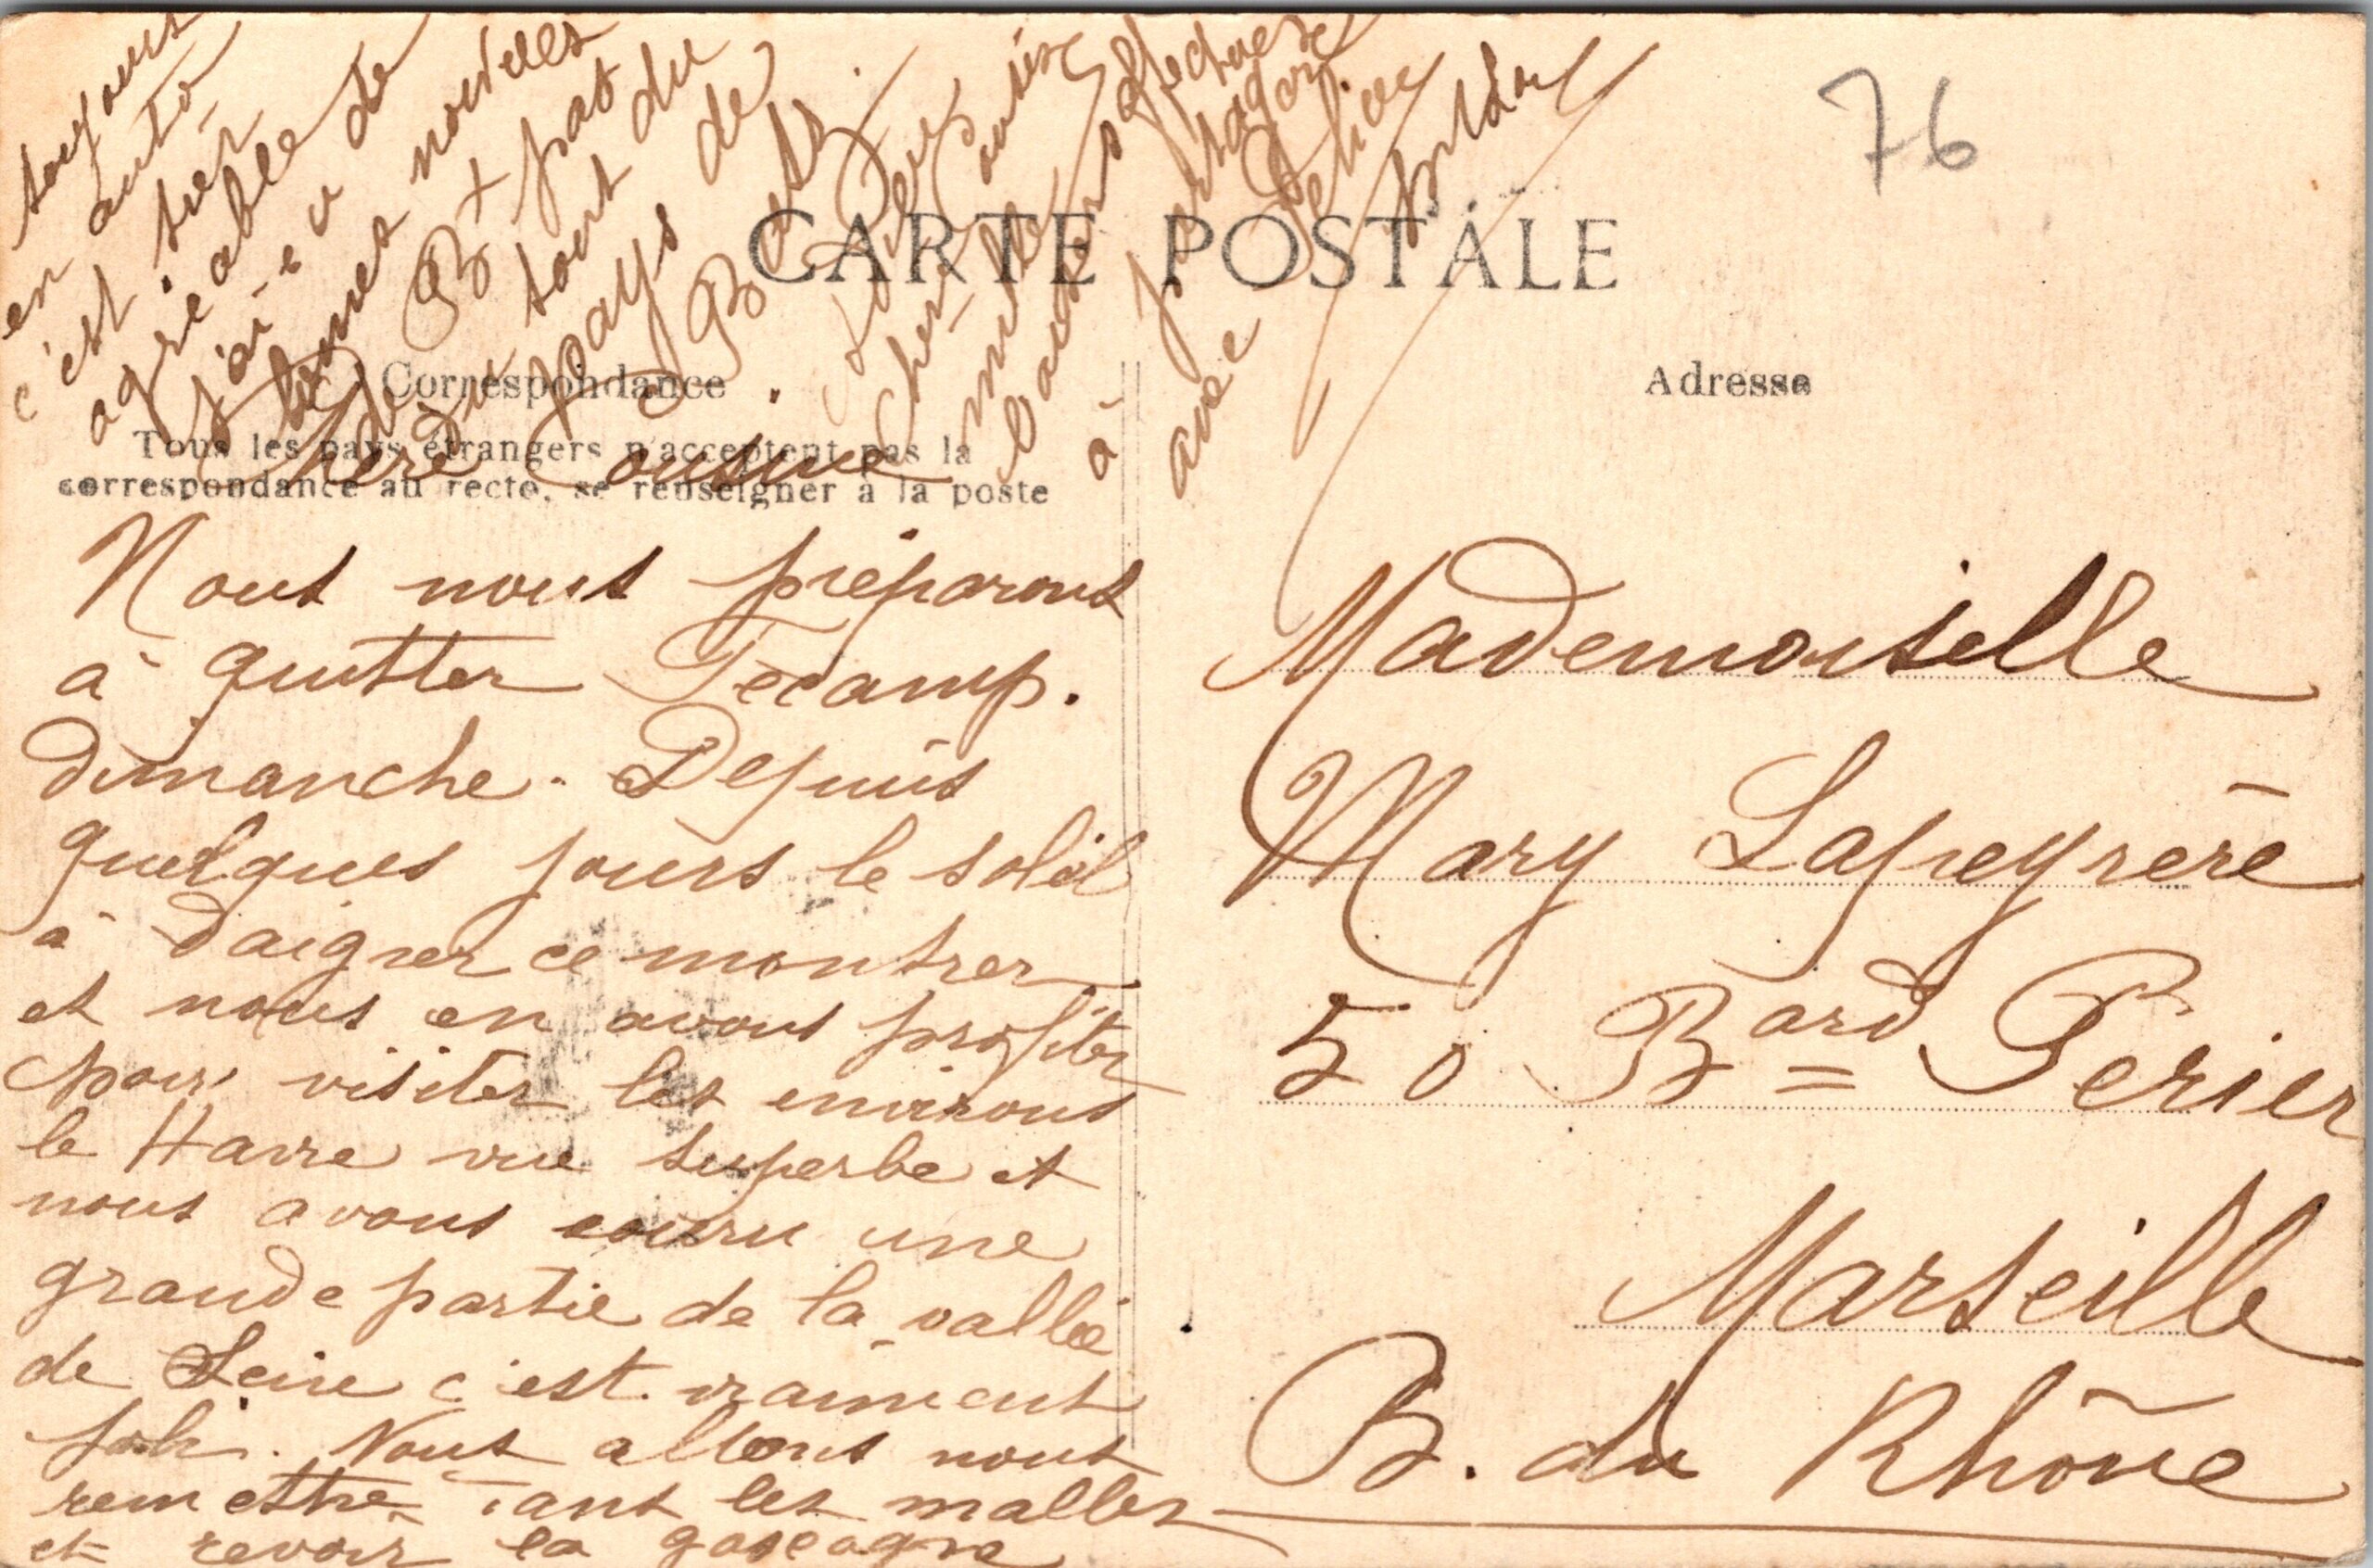 76
CARTE POSTALE
Correspondance
Adresse
Tous les pays étrangers n'acceptent pas la
correspondance au recto, se renseigner à la poste
Chère Cousine
Nous nous préparons
à quitter Fécamp.
dimanche. Depuis
quelques jours le soleil
à daigner ce montrer
et nous en avons profiter
pour visiter les environs
le Havre vue superbe et
nous avons couru une
grande partie de la vallée
de Seine c'est vraiment
joli. Nous allons nous
remettre dans les malles
et revoir la gascogne
toujours
en auto
c'est très
agréable de
j'ai eu
bonnes nouvelles
de Bx pas
du tout du
pays de
Bouts.
Chère Cousine
mille
baisers affectueux
à partager
avec
Mademoiselle
Mary Lapeyrère
50 Bard Périer
Marseille
B. du Rhône